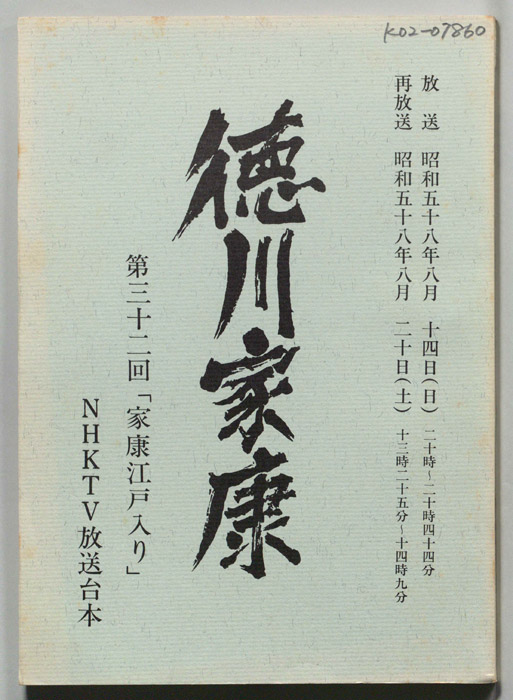 K02-07860
放送 昭和五十八年八月 十四日(日) 二十時~二十時四十四分
再放送 昭和五十八年八月 二十日(土) 十三時二十五分~十四時九分
徳川家康
第三十二回「家康江戸入り」
NHKTV放送台本